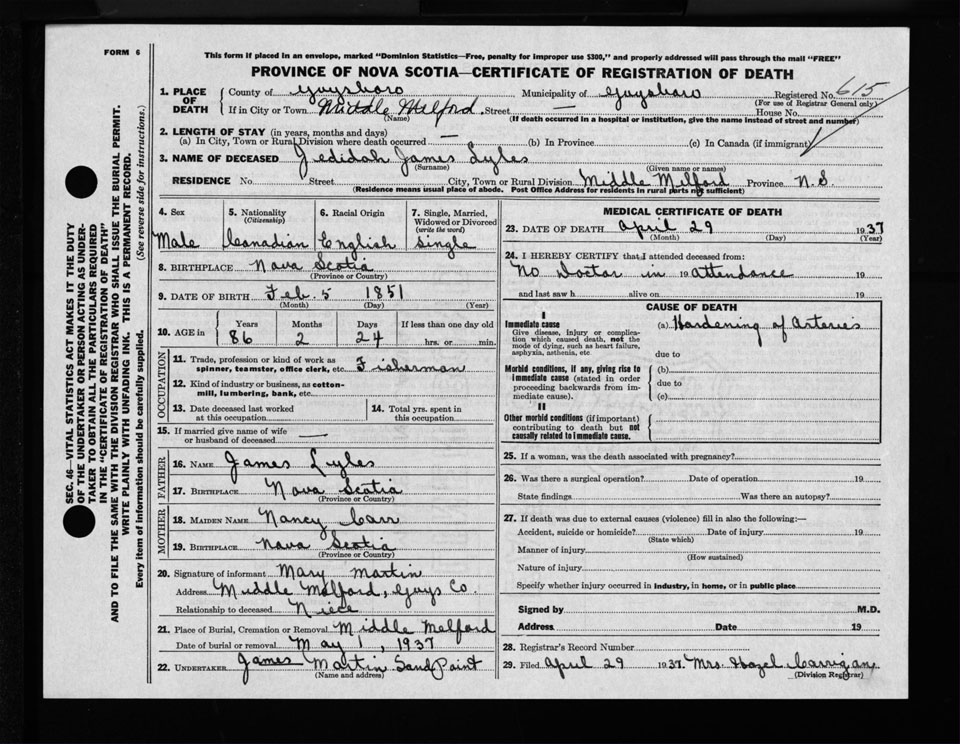 FORM 6
This form if placed in an envelope, marked "Dominion Statistics—Free, penalty for improper use $300," and properly addressed will pass through the mail "FREE"
PROVINCE OF NOVA SCOTIA—CERTIFICATE OF REGISTRATION OF DEATH
1. PLACE OF DEATH
County of Guysboro Municipality of Guysboro Registered No. 615
(For use of Registrar General only)
If in City or Town Middle Melford Street — House No.
(Name) (If death occurred in a hospital or institution, give the name instead of street and number)
2. LENGTH OF STAY (in years, months and days)
(a) In City, Town or Rural Division where death occurred — (b) In Province (c) In Canada (if immigrant)
3. NAME OF DECEASED Jedidah James Lyles
(Surname) (Given name or names)
RESIDENCE No. Street City, Town or Rural Division Middle Melford Province N.S.
(Residence means usual place of abode. Post Office Address for residents in rural parts not sufficient)
4. Sex
Male
5. Nationality
(Citizenship)
Canadian
6. Racial Origin
English
7. Single, Married, Widowed or Divorced
(write the word)
Single
8. BIRTHPLACE Nova Scotia
(Province or Country)
9. DATE OF BIRTH Feb. 5 1851
(Month) (Day) (Year)
10. AGE in
Years Months Days If less than one day old
86 2 24 hrs. or min.
OCCUPATION
11. Trade, profession or kind of work as spinner, teamster, office clerk, etc. Fisherman
12. Kind of industry or business, as cotton-mill, lumbering, bank, etc.
13. Date deceased last worked at this occupation
14. Total yrs. spent in this occupation
15. If married give name of wife or husband of deceased —
FATHER
16. NAME James Lyles
17. BIRTHPLACE Nova Scotia
(Province or Country)
MOTHER
18. MAIDEN NAME Nancy Carr
19. BIRTHPLACE Nova Scotia
(Province or Country)
20. Signature of informant Mary Martin
Address Middle Melford, Guys Co.
Relationship to deceased Niece
21. Place of Burial, Cremation or Removal Middle Melford
Date of burial or removal May 1, 1937
22. UNDERTAKER James Martin Sand Point
(Name and address)
MEDICAL CERTIFICATE OF DEATH
23. DATE OF DEATH April 29 1937
(Month) (Day) (Year)
24. I HEREBY CERTIFY that I attended deceased from:
No Doctor in 19 attendance 19
and last saw h alive on 19
CAUSE OF DEATH
I
Immediate cause
Give disease, injury or complication which caused death, not the mode of dying, such as heart failure, asphyxia, asthenia, etc
(a) Hardening of Arteries
due to
Morbid conditions, if any, giving rise to immediate cause (stated in order proceeding backwards from immediate cause).
(b)
due to
(c)
II
Other morbid conditions (if important) contributing to death but not causally related to immediate cause.
25. If a woman, was the death associated with pregnancy?
26. Was there a surgical operation? Date of operation 19
State findings Was there an autopsy?
27. If death was due to external causes (violence) fill in also the following:—
Accident, suicide or homicide? Date of injury 19
(State which)
Manner of injury
(How sustained)
Nature of injury
Specify whether injury occurred in industry, in home, or in public place
Signed by M.D.
Address Date 19
28. Registrar's Record Number
29. Filed April 29 1937. Mrs. Hazel Carrigan
(Division Registrar)
SEC. 46—VITAL STATISTICS ACT MAKES IT THE DUTY
OF THE UNDERTAKER OR PERSON ACTING AS UNDER-
TAKER TO OBTAIN ALL THE PARTICULARS REQUIRED
IN THE "CERTIFICATE OF REGISTRATION OF DEATH"
AND TO FILE THE SAME WITH THE DIVISION REGISTRAR WHO SHALL ISSUE THE BURIAL PERMIT.
WRITE PLAINLY WITH UNFADING INK. THIS IS A PERMANENT RECORD.
Every item of information should be carefully supplied. (See reverse side for instructions.)